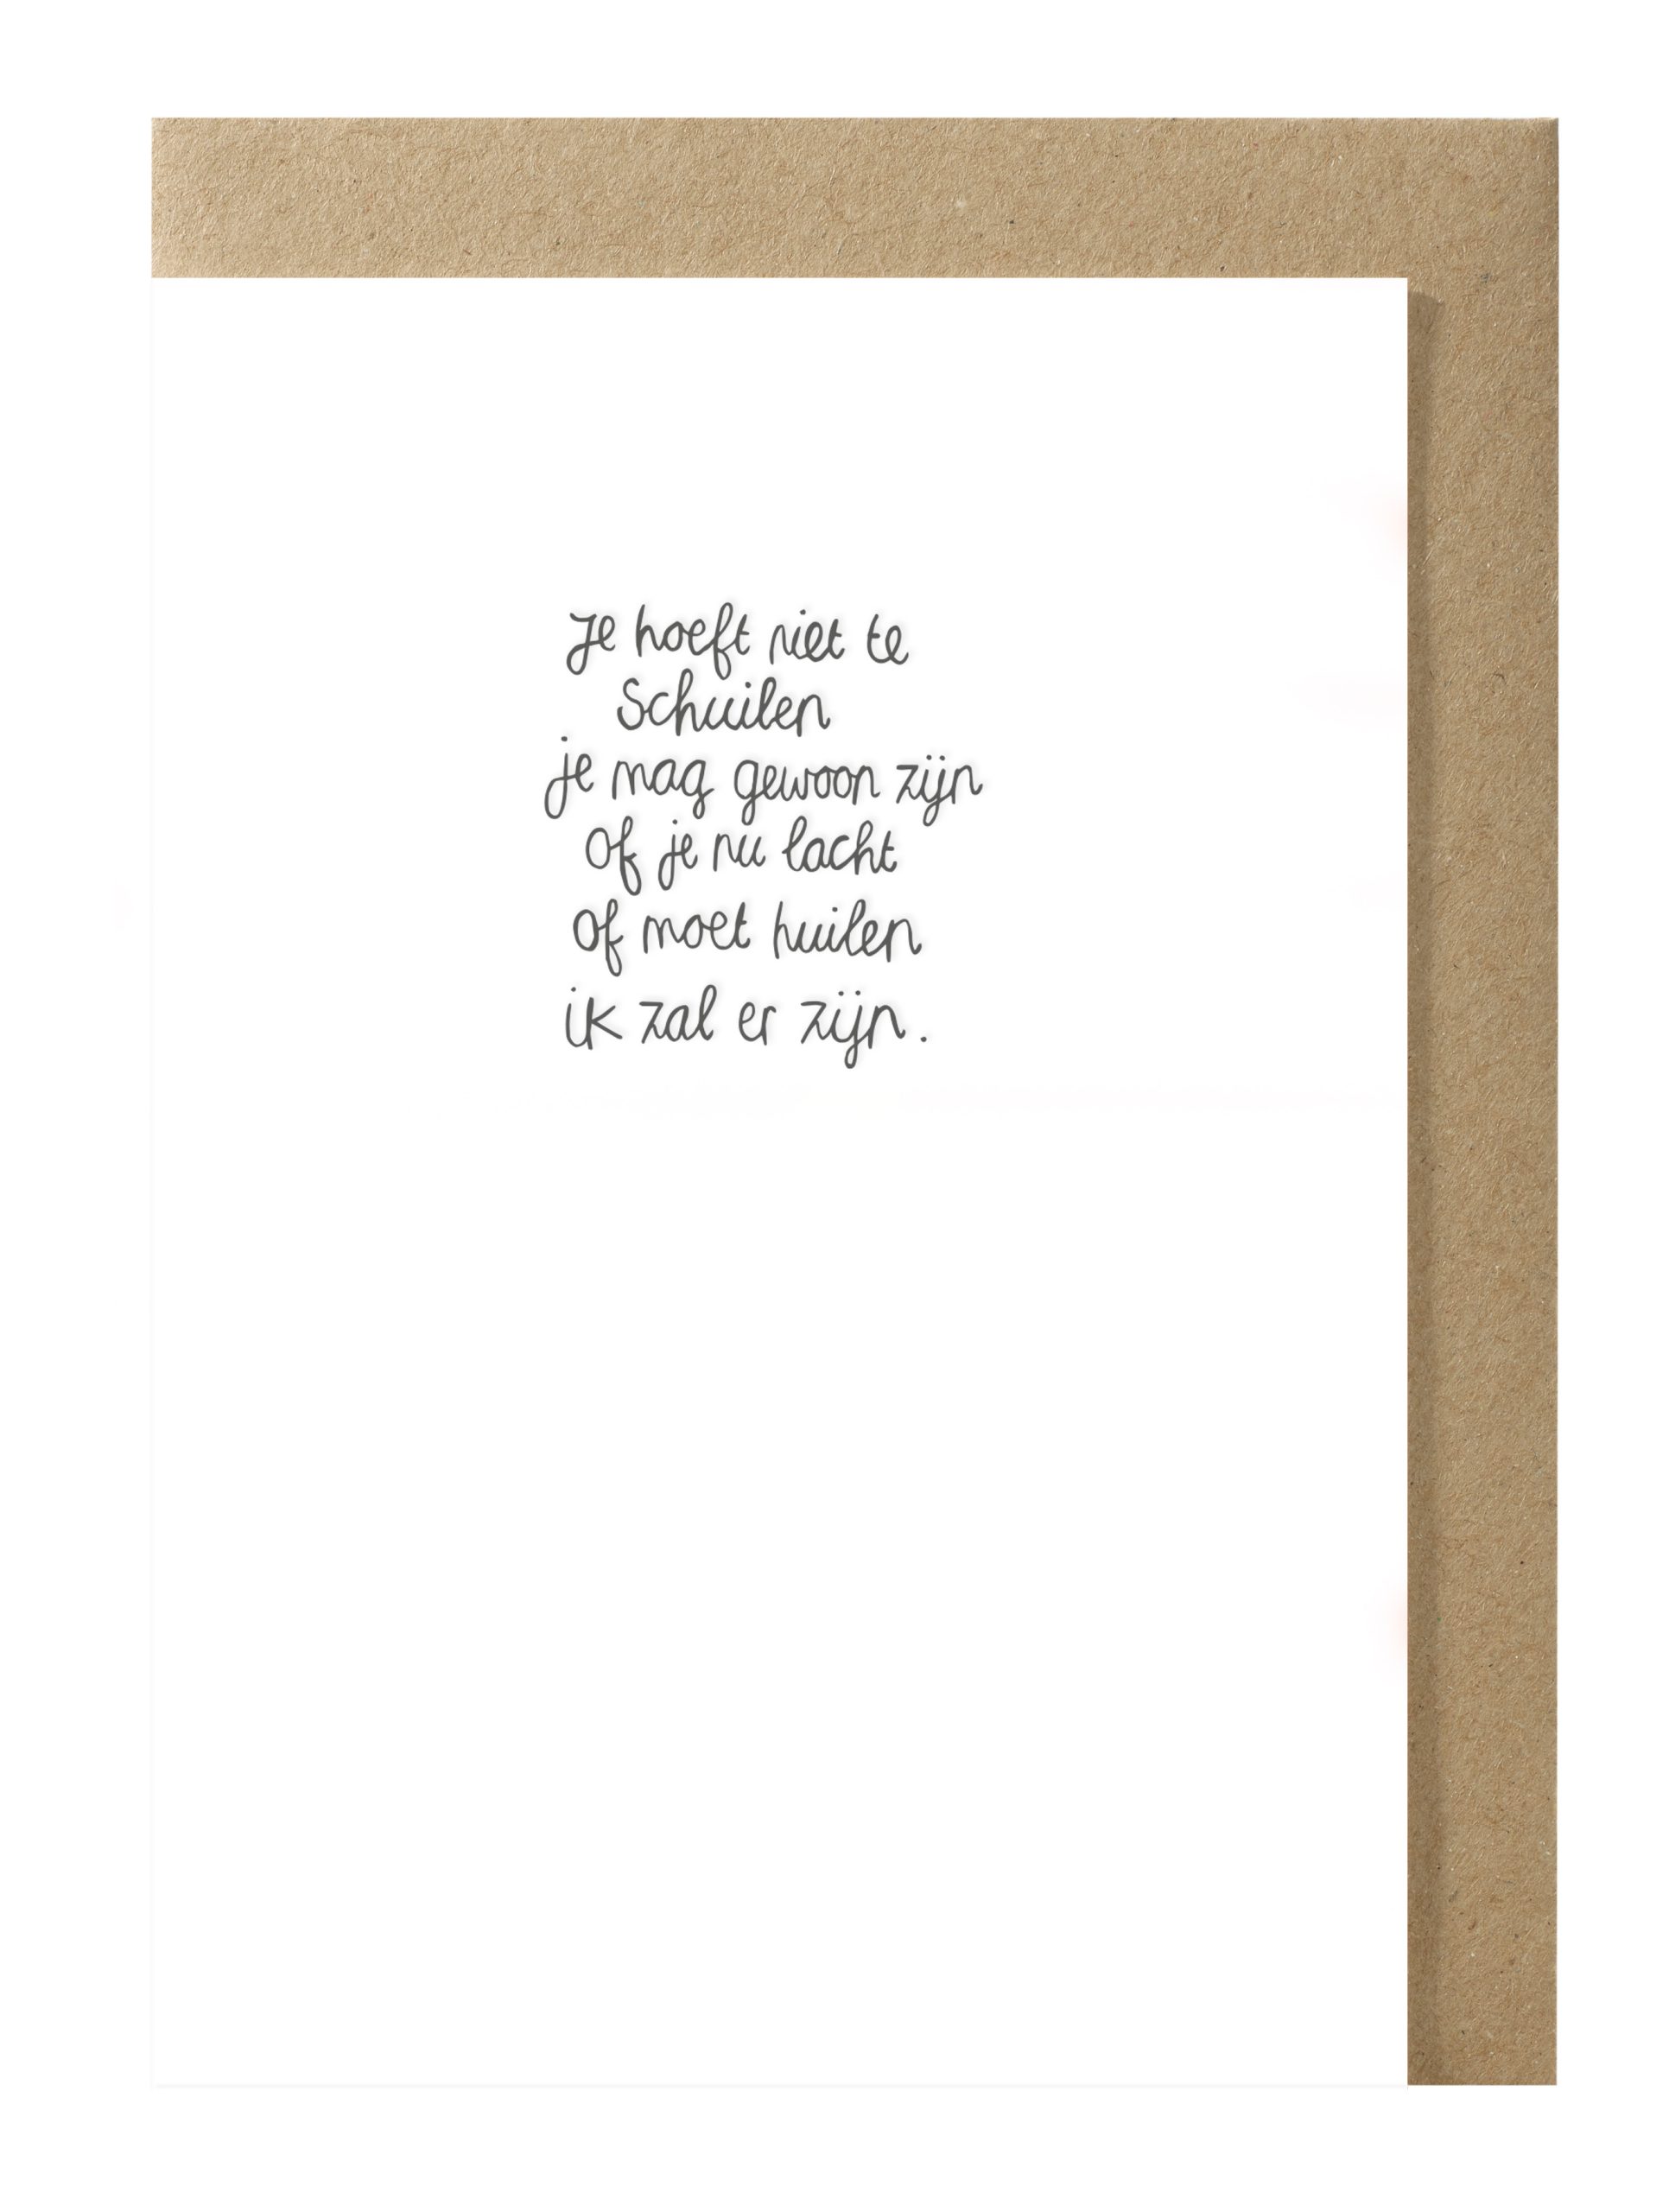 Je hoeft niet te
Schuilen
je mag gewoon zijn
of je nu lacht
of moet huilen
ik zal er zijn.